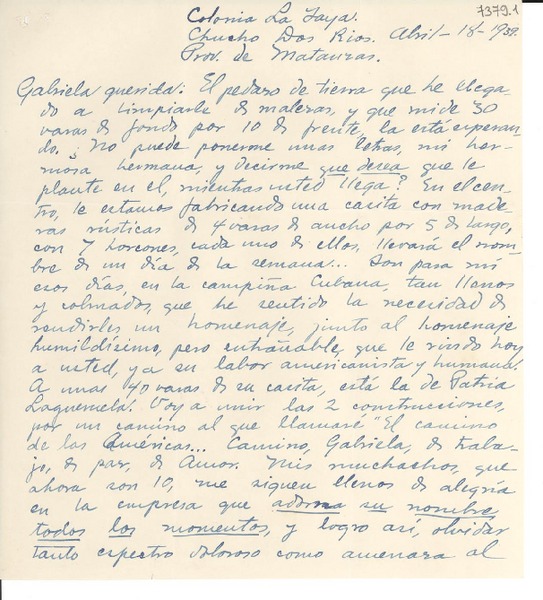 7379.1
Colonia La Yaya.
Chucho Dos Rios. Abril-18-1939
Prov. de Matanzas.
Gabriela querida: El pedazo de tierra que he llega-
do a limpiarle de malezas, y que mide 30
varas de fondo por 10 de frente, la está esperan-
do. ¿No puede ponerme unas letras, mi her-
mosa hermana, y decirme que desea que le
plante en el, mientras usted llega? En el cen-
tro, le estamos fabricando una casita con made-
ras rústicas de 4 varas de ancho por 5 de largo,
con 7 horcones, cada uno de ellos, llevará el nom-
bre de un día de la semana... Son para mí
esos días, en la campiña Cubana, tan llenos
y colmados, que he sentido la necesidad de
rendirles un homenaje, junto al homenaje
humildísimo, pero entrañable, que le rindo hoy
a usted, y a su labor americanista y humana.
A unas 40 varas de su casita, está la de Patria
Laguemela. Voy a unir las 2 construcciones,
por un camino al que llamaré "El camino
de las Américas... Camino, Gabriela, de traba-
jo, de paz, de Amor. Mis muchachos, que
ahora son 10, me siguen llenos de alegría
en la empresa que adorna su nombre
todos los momentos, y logro así, olvidar
tanto espectro doloroso como amenaza al